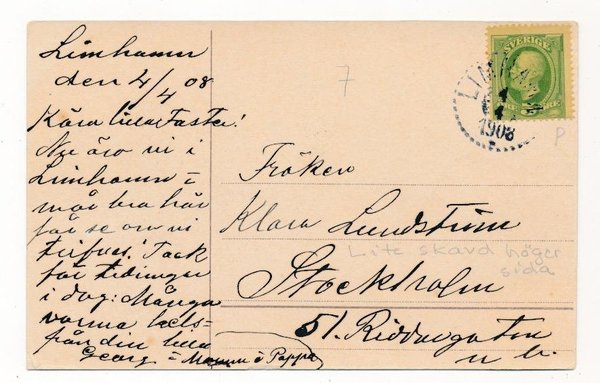 Limhamn
den 4/4 08
Kära lilla Faster!
Nu äro vi i
Limhamn =
mår bra här
får se om vi
trifves! Tack
för tidningar
i dag: Många
varma hels-
från din lilla
Georg - Mamma o Pappa
7
SVERIGE
LIMHAMN
4
4
1908
P
Fröken
Klara Lundström
Lite skavd höger
sida
Stockholm
51. Riddaregatan
n. b.